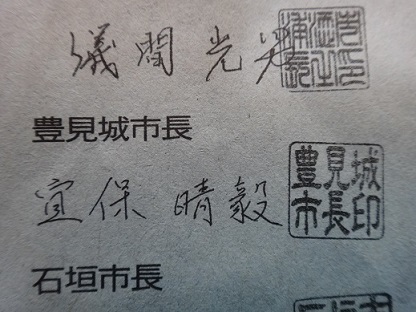 儀間 光男
豊見城市長
宜保 晴毅
豊見城
市長印
石垣市長